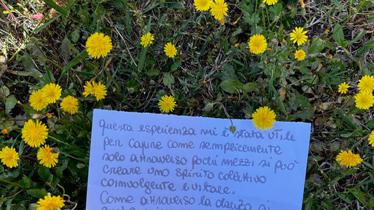 Questa esperienza mi è stata utile
per capire come semplicemente
solo attraverso pochi mezzi si può
creare uno spirito collettivo
coinvolgente e vitale.
Come attraverso la danza si